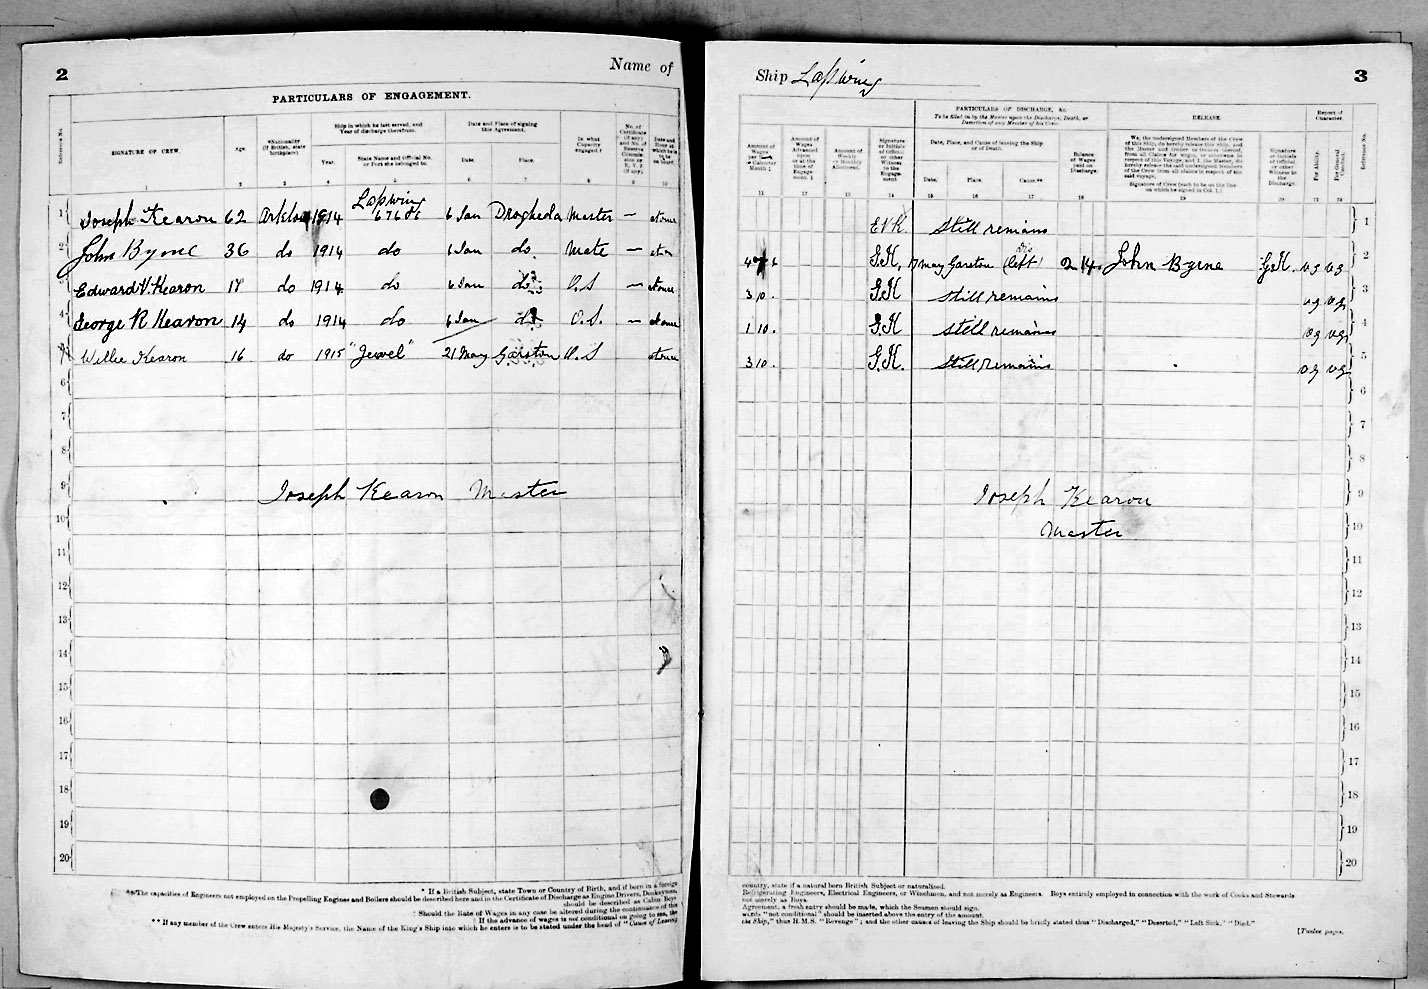 2
Name of
PARTICULARS OF ENGAGEMENT.
Reference No.
SIGNATURE OF CREW.
Age.
*Nationality (If British, state birthplace).
Ship in which he last served, and Year of discharge therefrom.
Year.
State Name and Official No. or Port she belonged to.
Date and Place of signing this Agreement.
Date.
Place.
In what Capacity engaged.
No. of Certificate (if any) and No. of Reserve Commission or R. V. 2 (if any).
Date and Hour at which he is to be on board.
1 2 3 4 5 6 7 8 9 10
Lapwing
1 Joseph Kearon 62 Arklow 1914 67686 6 Jan Drogheda Master — at once
2 John Byrne 36 do 1914 do 6 Jan do. Mate —
3 Edward V. Kearon do 1914 do 6 Jan do O.S — at once
4 George R Kearon 14 do 1914 do 6 Jan do O.S. — at once
5 Willie Kearon 16 do 1915 "Jewel" 21 May Garston O.S at once
6
7
8
9 Joseph Kearon Master
10
11
12
13
14
15
16
17
18
19
20
* If a British Subject, state Town or Country of Birth, and if born in a foreign
The capacities of Engineers not employed on the Propelling Engines and Boilers should be described here and in the Certificate of Discharge as Engine Drivers, Donkeymen,
should be described as Cabin Boys
Should the Rate of Wages in any case be altered during the continuance of this
If the advance of wages is not conditional on going to sea, the
** If any member of the Crew enters His Majesty's Service, the Name of the King's Ship into which he enters is to be stated under the head of "Cause of Leaving
Ship Lapwing
3
PARTICULARS OF DISCHARGE, &c.
To be filled in by the Master upon the Discharge, Death, or Desertion of any Member of his Crew.
RELEASE.
Report of Character.
Amount of Wages per Week or Calendar Month ‡
Amount of Wages Advanced upon or at the time of Engagement. ‡
Amount of Weekly or Monthly Allotment.
Signature or Initials of Official or other Witness to the Engagement
Date, Place, and Cause of leaving the Ship or of Death.
Date.
Place.
Cause.**
Balance of Wages paid on Discharge.
We, the undersigned Members of the Crew of this Ship, do hereby release this Ship, and the Master and Owner or Owners thereof, from all Claims for wages, or otherwise in respect of this Voyage, and I, the Master, do hereby release the said undersigned Members of the Crew from all claims in respect of the said voyage.
Signature of Crew (each to be on the line on which he signed in Col. 1.)
Signature or Initials of Official or other Witness to the Discharge.
For Ability.
For General Conduct.
Reference No.
11 12 13 14 15 16 17 18 19 20 21 22
E V K. Still remains 1
G.K. 17 May Garston left 2 14 John Byrne G.K. v.g v.g 2
3 10. G.K Still remains v g v.g. 3
1 10. G.K Still remains v g v.g. 4
3 10. G.K. Still remains v g v.g. 5
6
7
8
Joseph Kearon 9
Master 10
11
12
13
14
15
16
17
18
19
20
country, state if a natural born British Subject or naturalized.
Refrigerating Engineers, Electrical Engineers, or Winchmen, and not merely as Engineers. Boys entirely employed in connection with the work of Cooks and Stewards
not merely as Boys.
Agreement, a fresh entry should be made, which the Seamen should sign.
words "not conditional" should be inserted above the entry of the amount.
the Ship," thus H.M.S. "Revenge"; and the other causes of leaving the Ship should be briefly stated thus "Discharged," "Deserted," "Left Sick," "Died."
[Twelve pages.